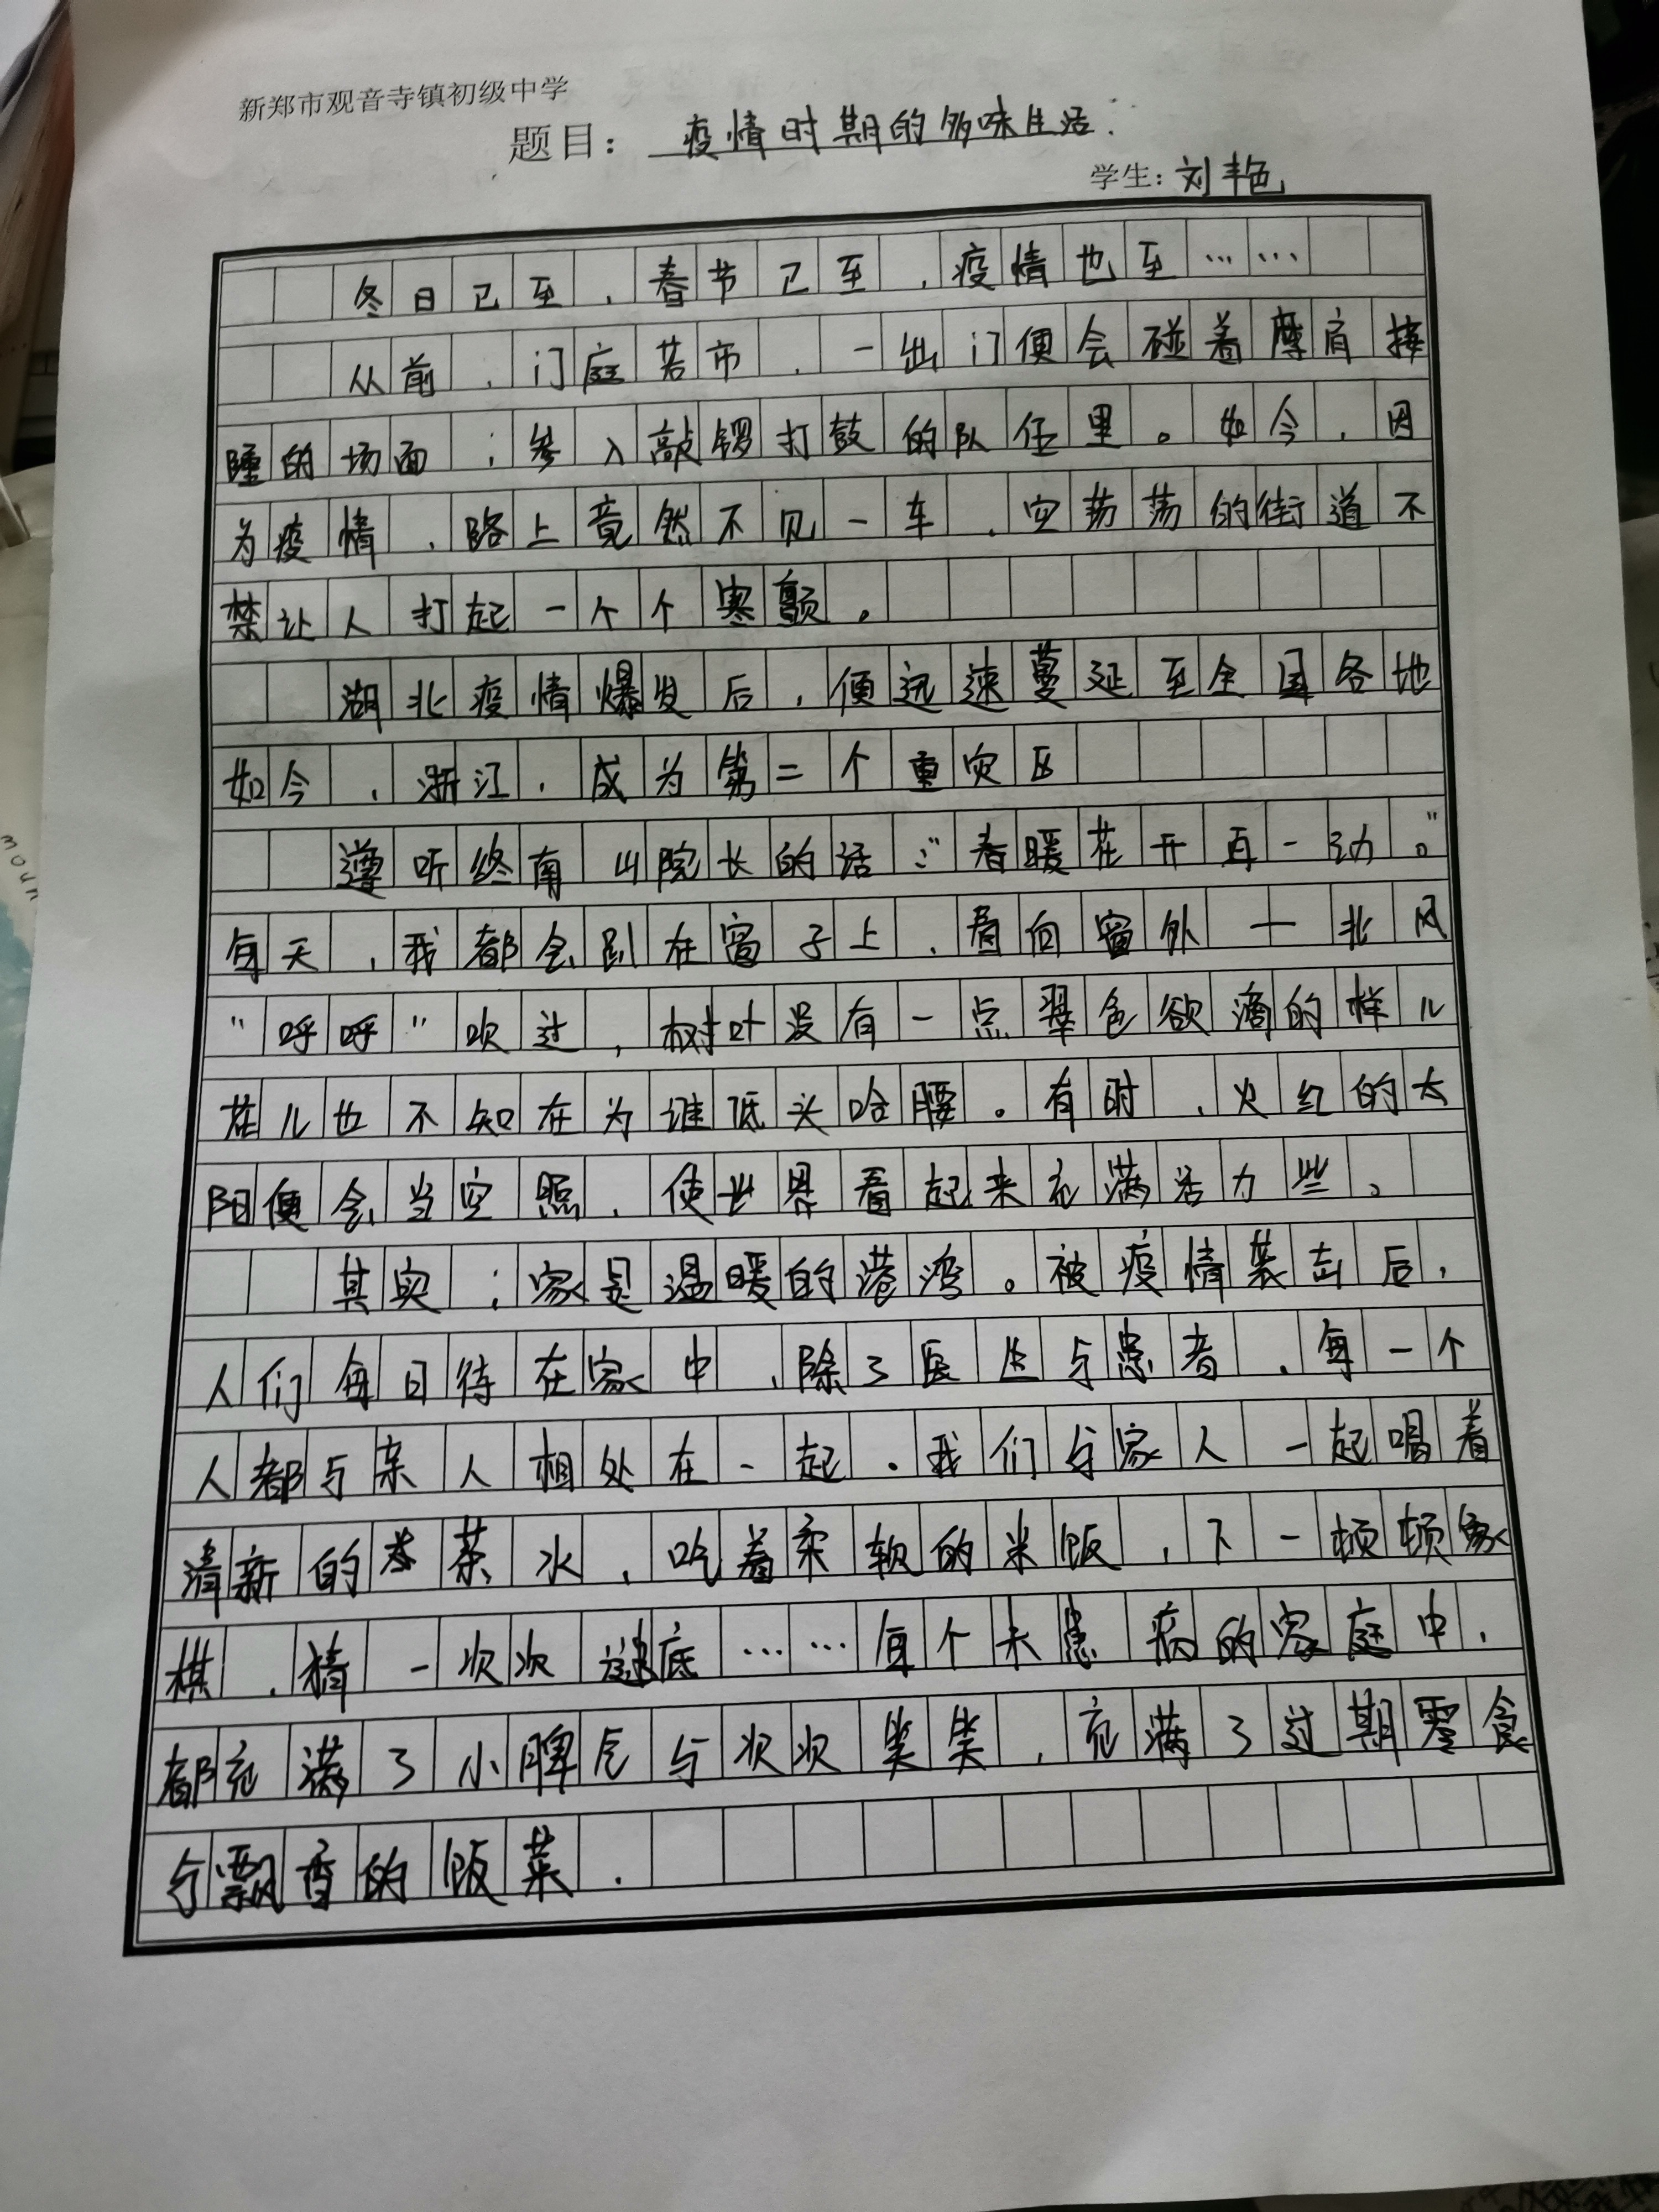 新郑市观音寺镇初级中学
题目：疫情时期的多味生活.
学生：刘丰色
冬日已至，春节已至，疫情也至……
从前，门庭若市，一出门便会碰着摩肩接
踵的场面；参入敲锣打鼓的队伍里。如今，因
为疫情，路上竟然不见一车，空荡荡的街道不
禁让人打起一个个寒颤。
湖北疫情爆发后，便迅速蔓延至全国各地
如今，浙江，成为第二个重灾区
遵听终南山院长的话：“春暖花开再一动。”
每天，我都会趴在窗子上，看向窗外—北风
“呼呼”吹过，树叶没有一点翠色欲滴的样儿
花儿也不知在为谁低头哈腰。有时，火红的太
阳便会当空照，使世界看起来充满活力些。
其实；家是温暖的港湾。被疫情袭击后，
人们每日待在家中，除了医生与患者，每一个
人都与亲人相处在一起。我们与家人一起喝着
清新的茶水，吃着柔软的米饭，下一顿顿象
棋，猜一次次谜底……每个未患病的家庭中，
都充满了小脾气与次次笑笑，充满了过期零食
与飘香的饭菜.